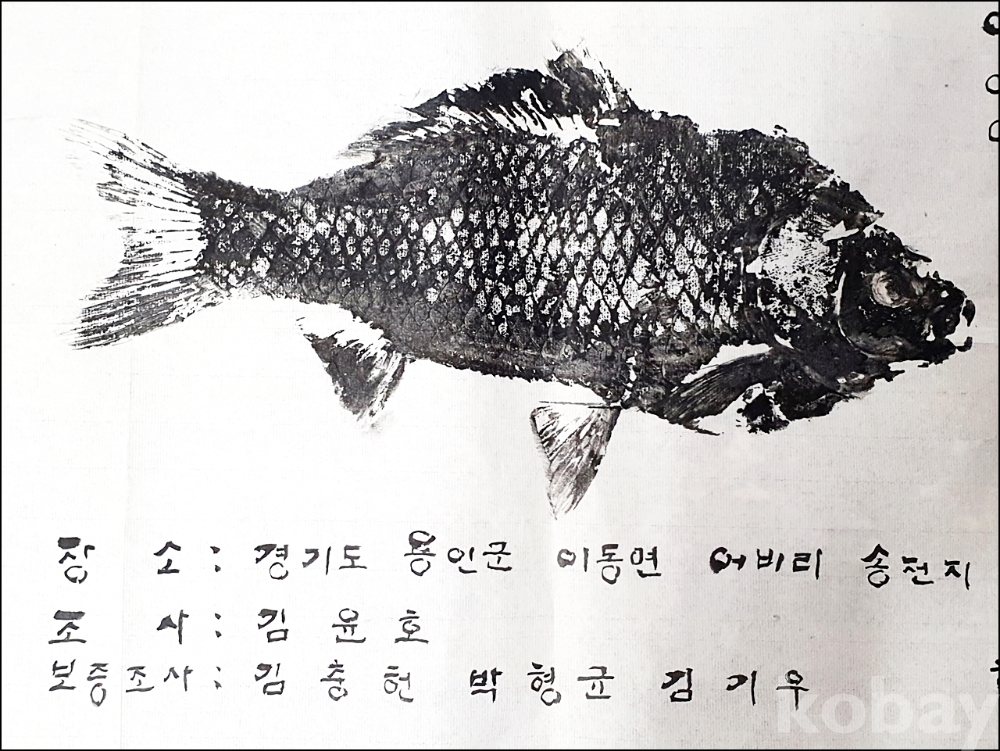 장 소 : 경기도 용인군 이동면 어비리 송전지
조 사 : 김 윤 호
보증조사 : 김 충 헌 박 형 균 김 기 우
kobay